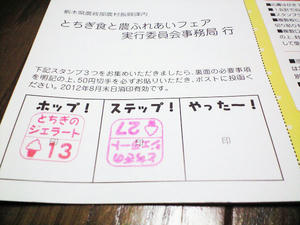 栃木県農政部農村振興課内
とちぎ食と農ふれあいフェア
実行委員会事務局 行
下記スタンプ3つをお集めいただきましたら、裏面の必要事項
を明記の上、50円切手を必ずお貼りいただき、ポストに投函く
ださい。2012年8月末日消印有効です。
ホップ！ ステップ！ やったー！
とちぎの
ジェラート
13
とちぎの
ジェラート
27
印